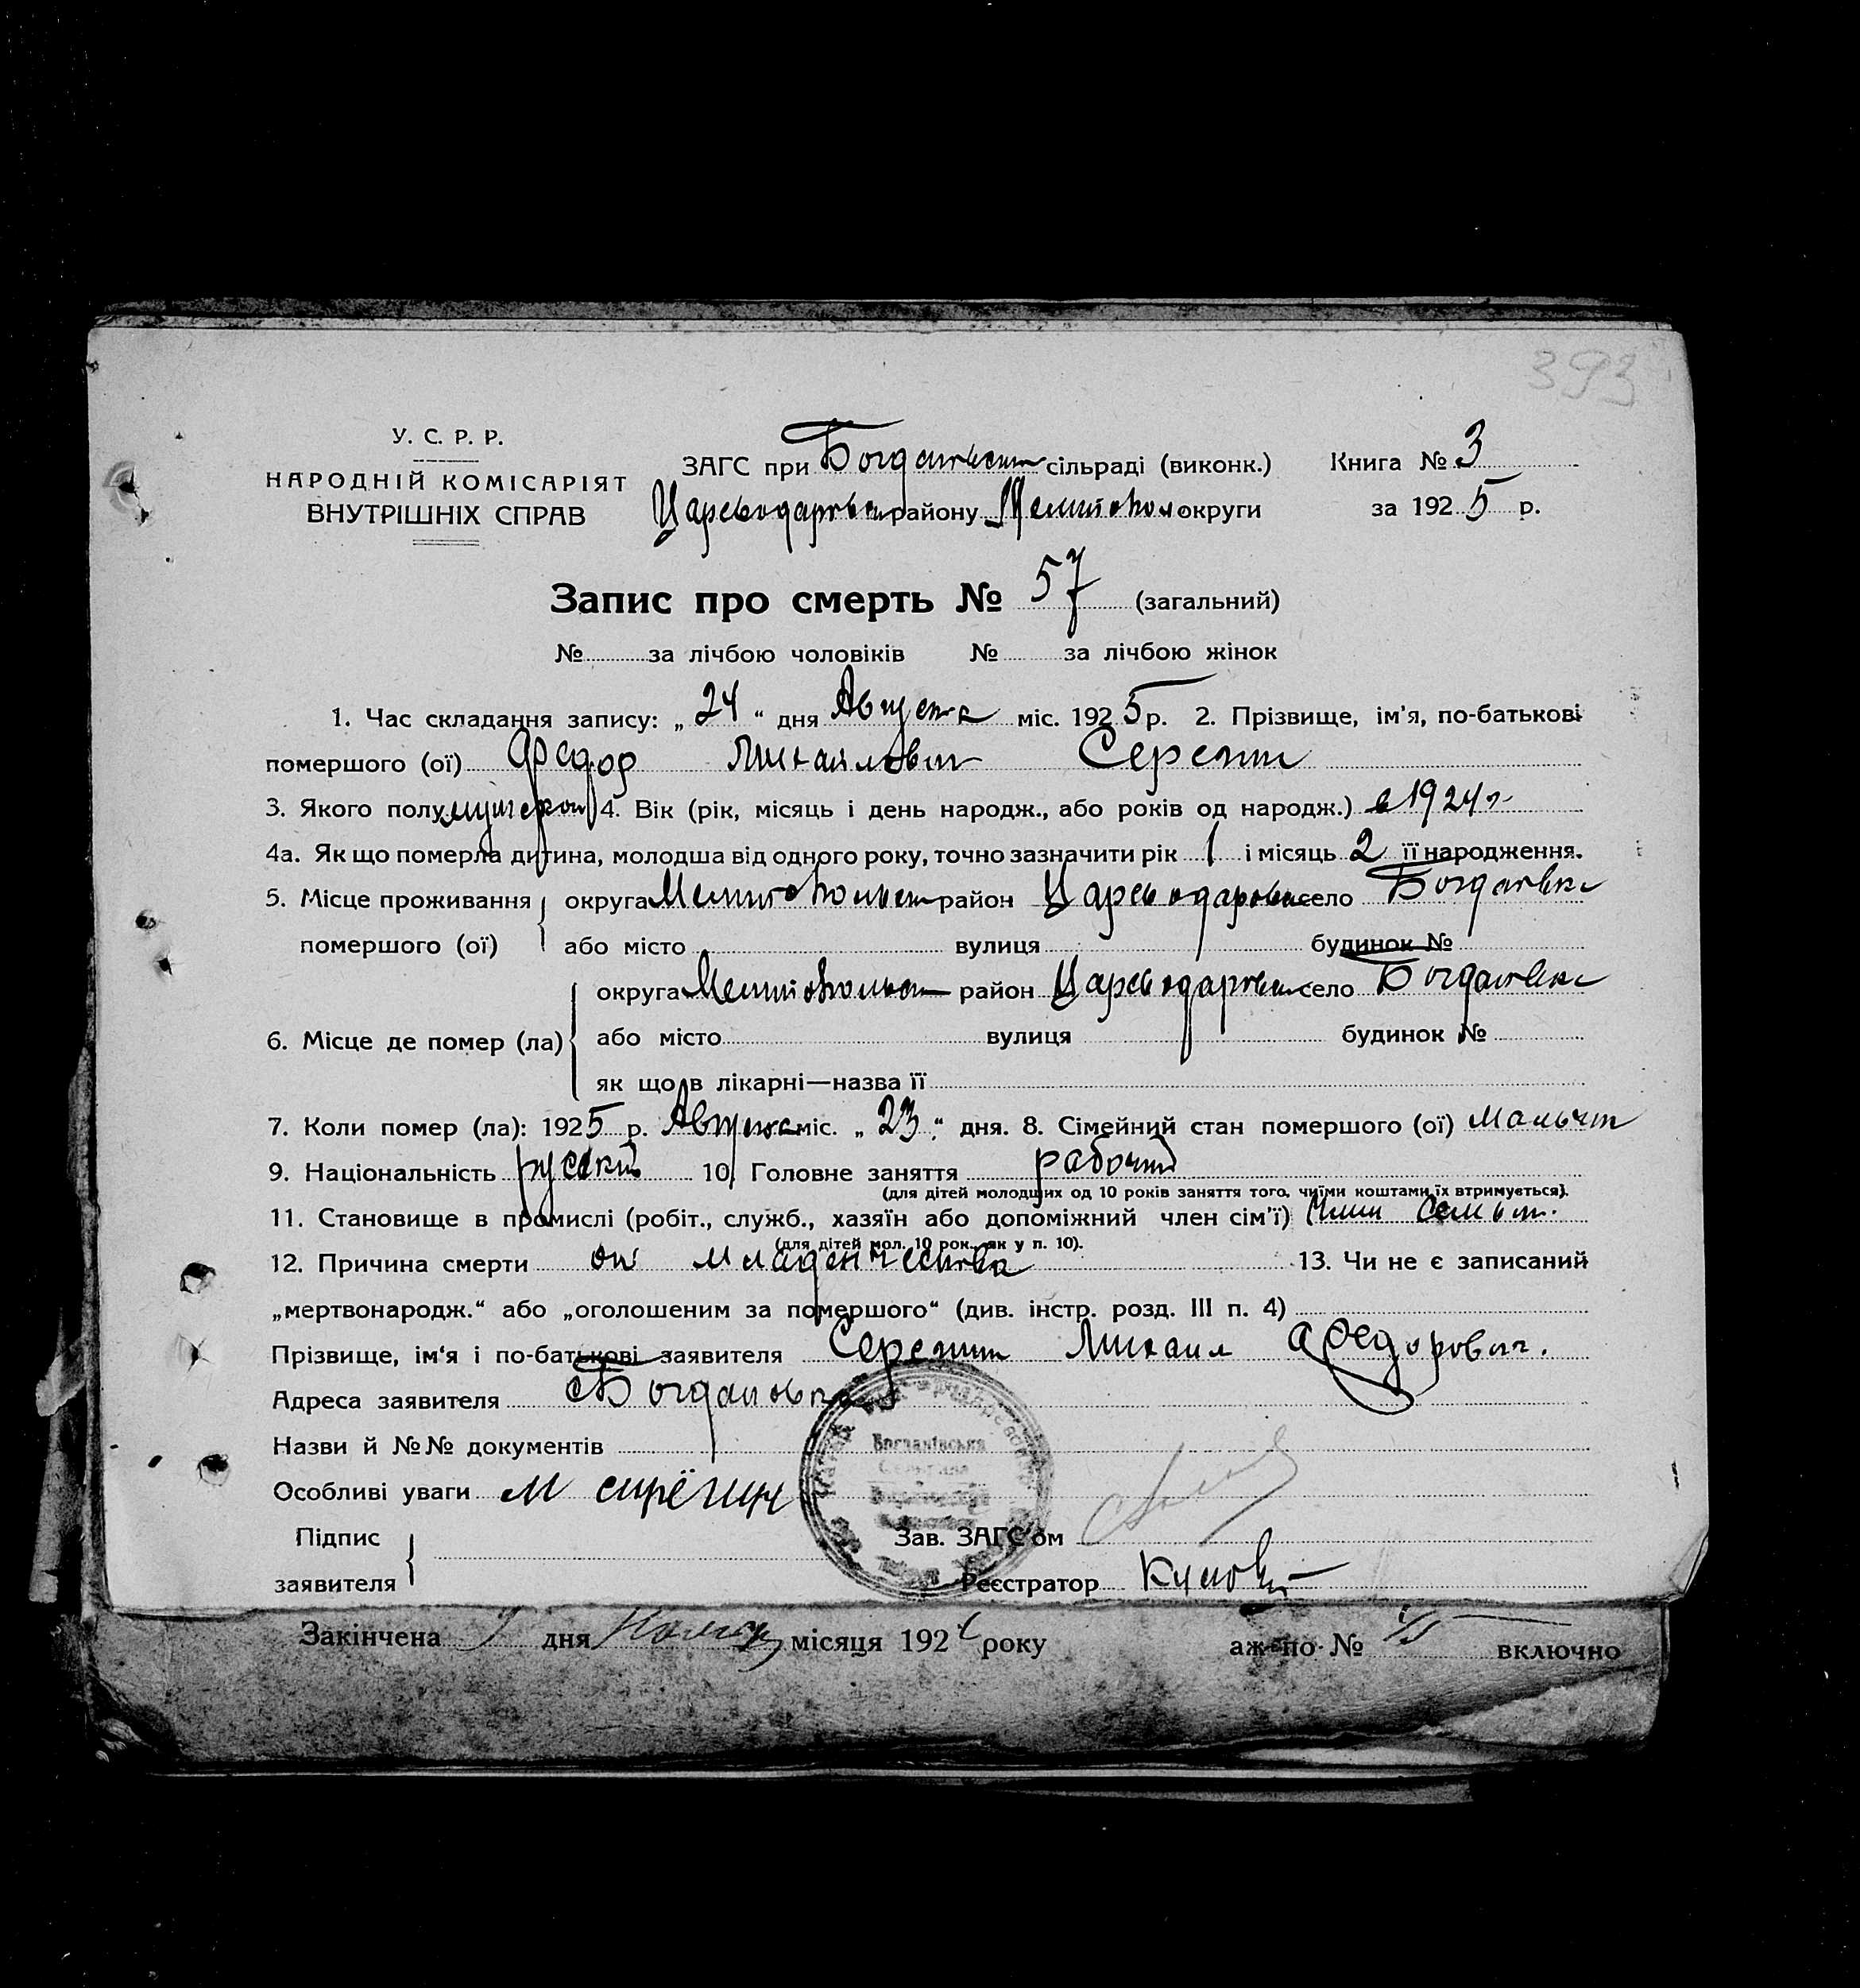 393
У. С. Р. Р.
НАРОДНІЙ КОМІСАРІЯТ
ВНУТРІШНІХ СПРАВ
ЗАГС при сільраді (виконк.) Книга № 3
району округи за 1925 р.
Запис про смерть № 57 (загальний)
№ за лічбою чоловіків № за лічбою жінок
1. Час складання запису: „ 24 “ дня Августа міс. 1925 р. 2. Прізвище, ім’я, по-батькові
помершого (ої) Федор Михайлович
3. Якого полу 4. Вік (рік, місяць і день народж., або років од народж.) в 1924 г
4а. Як що померла дитина, молодша від одного року, точно зазначити рік 1 і місяць 2 її народження.
5. Місце проживання округа район село Богдановка
помершого (ої) або місто вулиця будинок №
округа район село Богдановка
6. Місце де помер (ла) або місто вулиця будинок №
як що в лікарні—назва її
7. Коли помер (ла): 1925 р. Августа міс. „ 23 “ дня. 8. Сімейний стан помершого (ої)
9. Національність руский 10. Головне заняття рабочий
(для дітей молодших од 10 років заняття того, чиїми коштами їх втримується).
11. Становище в промислі (робіт., служб., хазяїн або допоміжний член сім’ї) член семьи.
(для дітей мол. 10 рок. як у п. 10).
12. Причина смерти от младенчества 13. Чи не є записаний
„мертвонародж.“ або „оголошеним за помершого“ (див. інстр. розд. III п. 4)
Прізвище, ім‘я і по-батькові заявителя Михаил Федорович.
Адреса заявителя с Богдановка
Назви й №№ документів
Богданівська
Особливі уваги М сирёгин
Підпис Зав. ЗАГС’ом
заявителя Реєстратор
Закінчена дня місяця 192 року аж по № включно